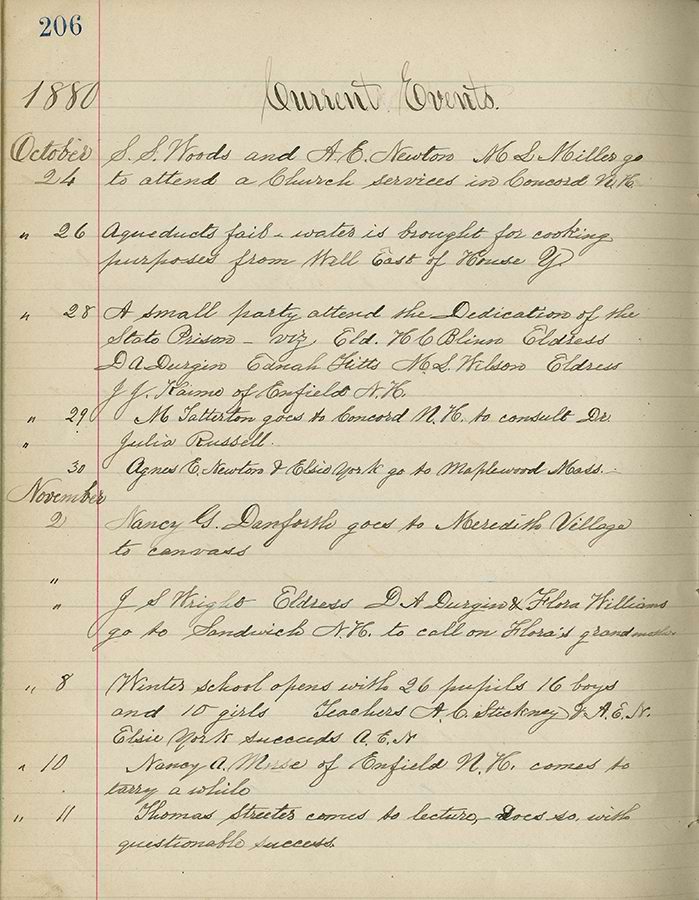 206
1880 Current Events.
October S. S. Woods and A. E. Newton M L Miller go
24 to attend a Church services in Concord N. H.
" 26 Aqueducts fail - water is brought for cooking
purposes from Well East of House Y.
" 28 A small party attend the Dedication of the
State Prison - viz, Eld. H C Blinn Eldress
D A Durgin Ednah Fitts M. S. Wilson Eldress
J J. Kaime of Enfield N. H.
" 29 M Tatterton goes to Concord N. H. to consult Dr.
" Julia Russell.
30 Agnes E. Newton & Elsie York go to Maplewood Mass.
November
2 Nancy G. Danforth goes to Meredith Village
to canvass
"
" J S Wright Eldress D A Durgin & Flora Williams
go to Sandwich N. H. to call on Flora's grandmother
" 8 Winter school opens with 26 pupils 16 boys
and 10 girls Teachers A. C. Stickney & A. E. N.
Elsie York succeeds A. E. N
" 10 Nancy A. Muse of Enfield N. H. comes to
tarry a while
" 11 Thomas Streeter comes to lecture, - does so, with
questionable success.